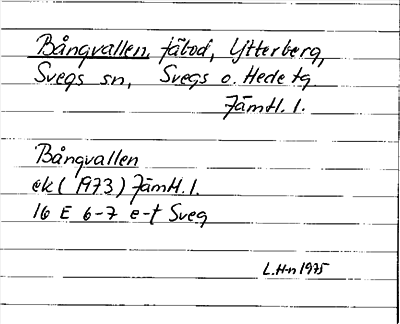 Bångvallen, fäbod, Ytterberg,
Svegs sn, Svegs o. Hede tg
Jämtl. l.
Bångvallen
ek (1973) Jämtl. l.
16 E 6-7 e-f Sveg
L. H-n 1975